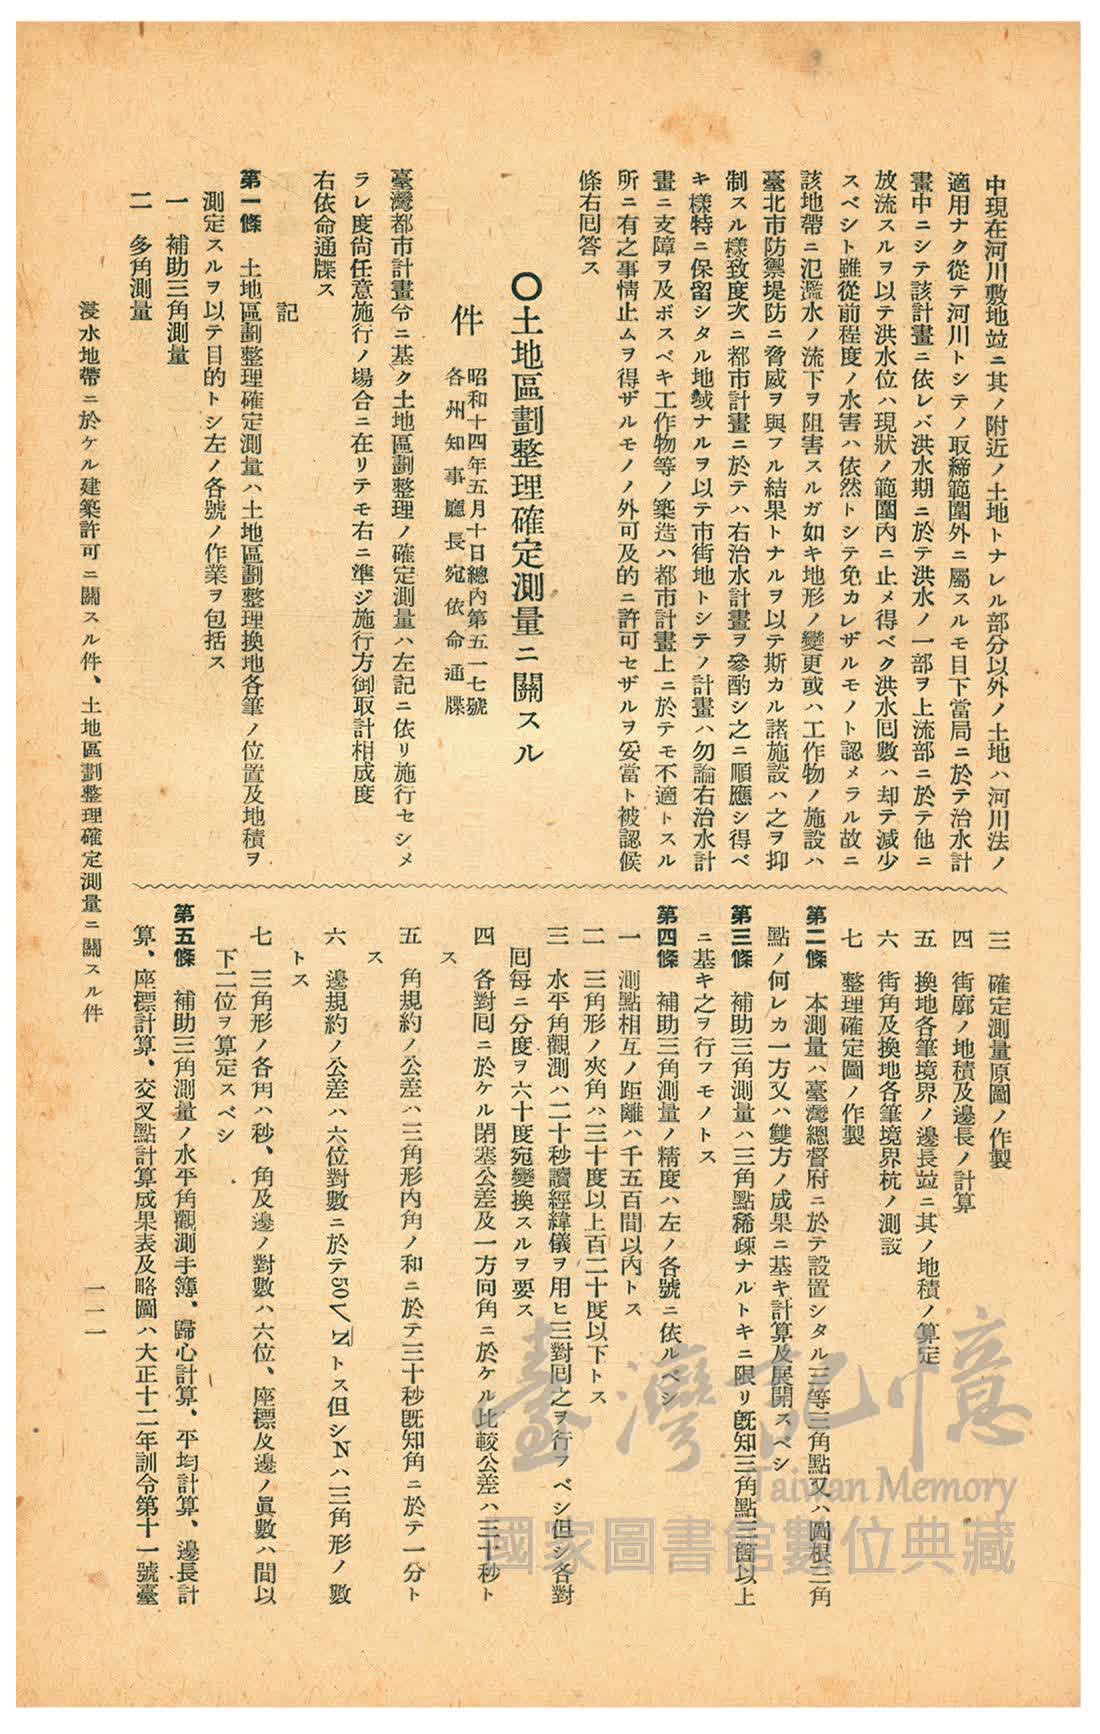 中現在河川敷地竝ニ其ノ附近ノ土地トナレル部分以外ノ土地ハ河川法ノ
適用ナク從テ河川トシテノ取締範圍外ニ屬スルモ目下當局ニ於テ治水計
畫中ニシテ該計畫ニ依レバ洪水期ニ於テ洪水ノ一部ヲ上流部ニ於テ他ニ
放流スルヲ以テ洪水位ハ現狀ノ範圍內ニ止メ得ベク洪水回數ハ却テ減少
スベシト雖從前程度ノ水害ハ依然トシテ免カレザルモノト認メラル故ニ
該地帶ニ氾濫水ノ流下ヲ阻害スルガ如キ地形ノ變更或ハ工作物ノ施設ハ
臺北市防禦堤防ニ脅威ヲ與フル結果トナルヲ以テ斯カル諸施設ハ之ヲ抑
制スル樣致度次ニ都市計畫ニ於テハ右治水計畫ヲ參酌シ之ニ順應シ得ベ
キ樣特ニ保留シタル地域ナルヲ以テ市街地トシテノ計畫ハ勿論右治水計
畫ニ支障ヲ及ボスベキ工作物等ノ築造ハ都市計畫上ニ於テモ不適トスル
所ニ有之事情止ムヲ得ザルモノノ外可及的ニ許可セザルヲ妥當ト被認候
條右回答ス
〇土地區劃整理確定測量ニ關スル
件
昭和十四年五月十日總內第五一七號
各州知事廳長宛依命通牒
臺灣都市計畫令ニ基ク土地區劃整理ノ確定測量ハ左記ニ依リ施行セシメ
ラレ度尙任意施行ノ場合ニ在リテモ右ニ準ジ施行方御取計相成度
右依命通牒ス
記
第一條 土地區劃整理確定測量ハ土地區劃整理換地各筆ノ位置及地積ヲ
測定スルヲ以テ目的トシ左ノ各號ノ作業ヲ包括ス
一 補助三角測量
二 多角測量
三 確定測量原圖ノ作製
四 街廓ノ地積及邊長ノ計算
五 換地各筆境界ノ邊長竝ニ其ノ地積ノ算定
六 街角及換地各筆境界杭ノ測設
七 整理確定圖ノ作製
第二條 本測量ハ臺灣總督府ニ於テ設置シタル三等三角點又ハ圖根三角
點ノ何レカ一方又ハ雙方ノ成果ニ基キ計算及展開スベシ
第三條 補助三角測量ハ三角點稀疎ナルトキニ限リ旣知三角點三箇以上
ニ基キ之ヲ行フモノトス
第四條 補助三角測量ノ精度ハ左ノ各號ニ依ルベシ
一 測點相互ノ距離ハ千五百間以內トス
二 三角形ノ夾角ハ三十度以上百二十度以下トス
三 水平角觀測ハ二十秒讀經緯儀ヲ用ヒ三對回之ヲ行フベシ但シ各對
回每ニ分度ヲ六十度宛變換スルヲ要ス
四 各對回ニ於ケル閉塞公差及一方向角ニ於ケル比較公差ハ三十秒ト
ス
五 角規約ノ公差ハ三角形內角ノ和ニ於テ三十秒旣知角ニ於テ一分ト
ス
六 邊規約ノ公差ハ六位對數ニ於テ50√Nトス但シNハ三角形ノ數
トス
七 三角形ノ各角ハ秒、角及邊ノ對數ハ六位、座標及邊ノ眞數ハ間以
下二位ヲ算定スベシ
第五條 補助三角測量ノ水平角觀測手簿、歸心計算、平均計算、邊長計
算、座標計算、交叉點計算成果表及略圖ハ大正十二年訓令第十一號臺
浸水地帶ニ於ケル建築許可ニ關スル件、土地區劃整理確定測量ニ關スル件
一一一
臺灣記憶
Taiwan Memory
國家圖書館數位典藏